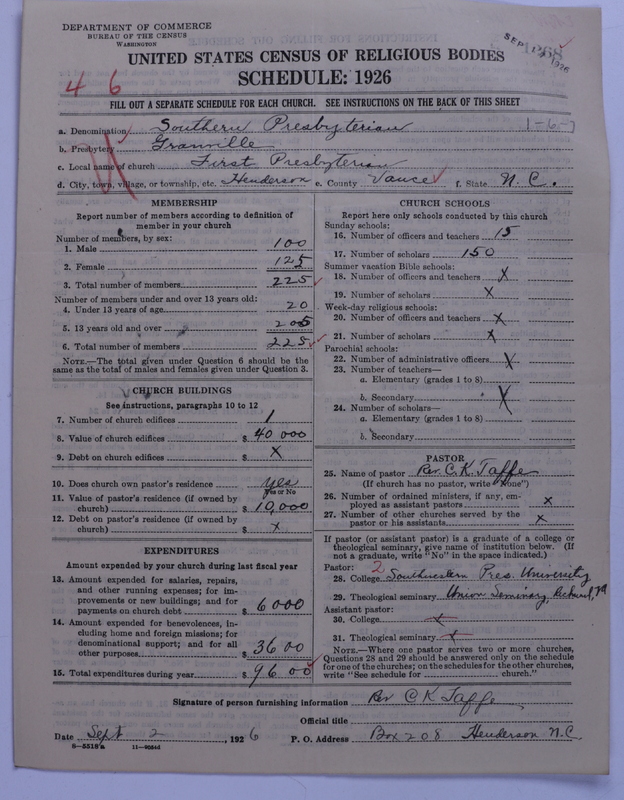 DEPARTMENT OF COMMERCE
BUREAU OF THE CENSUS
WASHINGTON
SEP 1926
1268
UNITED STATES CENSUS OF RELIGIOUS BODIES
SCHEDULE: 1926
4 6
FILL OUT A SEPARATE SCHEDULE FOR EACH CHURCH. SEE INSTRUCTIONS ON THE BACK OF THIS SHEET
a. Denomination Southern Presbyterian 1-6-7
b. Presbytery Granville
c. Local name of church First Presbyterian
d. City, town, village, or township, etc. Henderson e. County Vance f. State N.C.
MEMBERSHIP
Report number of members according to definition of
member in your church
Number of members, by sex:
1. Male 100
2. Female 125
3. Total number of members 225
Number of members under and over 13 years old:
4. Under 13 years of age 20
5. 13 years old and over 205
6. Total number of members 225
NOTE.—The total given under Question 6 should be the
same as the total of males and females given under Question 3.
CHURCH BUILDINGS
See instructions, paragraphs 10 to 12
7. Number of church edifices 1
8. Value of church edifices $ 40 000
9. Debt on church edifices $ X
10. Does church own pastor's residence yes
Yes or No
11. Value of pastor's residence (if owned by
church) $ 10,000
12. Debt on pastor's residence (if owned by
church) $ X
EXPENDITURES
Amount expended by your church during last fiscal year
13. Amount expended for salaries, repairs,
and other running expenses; for im-
provements or new buildings; and for
payments on church debt $ 6000
14. Amount expended for benevolences, in-
cluding home and foreign missions; for
denominational support; and for all
other purposes $ 3600
15. Total expenditures during year $ 9600
CHURCH SCHOOLS
Report here only schools conducted by this church
Sunday schools:
16. Number of officers and teachers 15
17. Number of scholars 150
Summer vacation Bible schools:
18. Number of officers and teachers X
19. Number of scholars X
Week-day religious schools:
20. Number of officers and teachers X
21. Number of scholars X
Parochial schools:
22. Number of administrative officers X
23. Number of teachers—
a. Elementary (grades 1 to 8)
b. Secondary X
24. Number of scholars—
a. Elementary (grades 1 to 8)
b. Secondary
PASTOR
25. Name of pastor Rev. C. K. Taffe
(If church has no pastor, write "None")
26. Number of ordained ministers, if any, em-
ployed as assistant pastors X
27. Number of other churches served by the
pastor or his assistants X
If pastor (or assistant pastor) is a graduate of a college or
theological seminary, give name of institution below. (If
not a graduate, write "No" in the space indicated.)
Pastor: 2
28. College Southwestern Pres. University
29. Theological seminary Union Seminary, Richmd, Va
Assistant pastor:
30. College X
31. Theological seminary X
NOTE.—Where one pastor serves two or more churches,
Questions 28 and 29 should be answered only on the schedule
for one of the churches; on the schedules for the other churches,
write "See schedule for church."
Signature of person furnishing information Rev C K Taffe
Official title
Date Sept 2, 1926 P. O. Address Box 208 Henderson N.C.
8-5518a 11-9054d